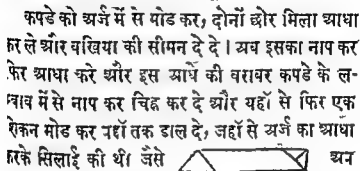 कपडे को अर्ज में से मोड कर, दोनों छोर मिला आधा
कर ले और बखिया की सीमन दे दे । अब इसका नाप कर
फिर आधा करे और इस आधे की बराबर कपडे के ल-
म्बाव में से नाप कर चिह्न कर दे और यहाँ से फिर एक
शिकन मोड कर वहाँ तक डाल दे, जहाँ से अर्ज का आधा
करके सिलाई की थी। जैसे अब